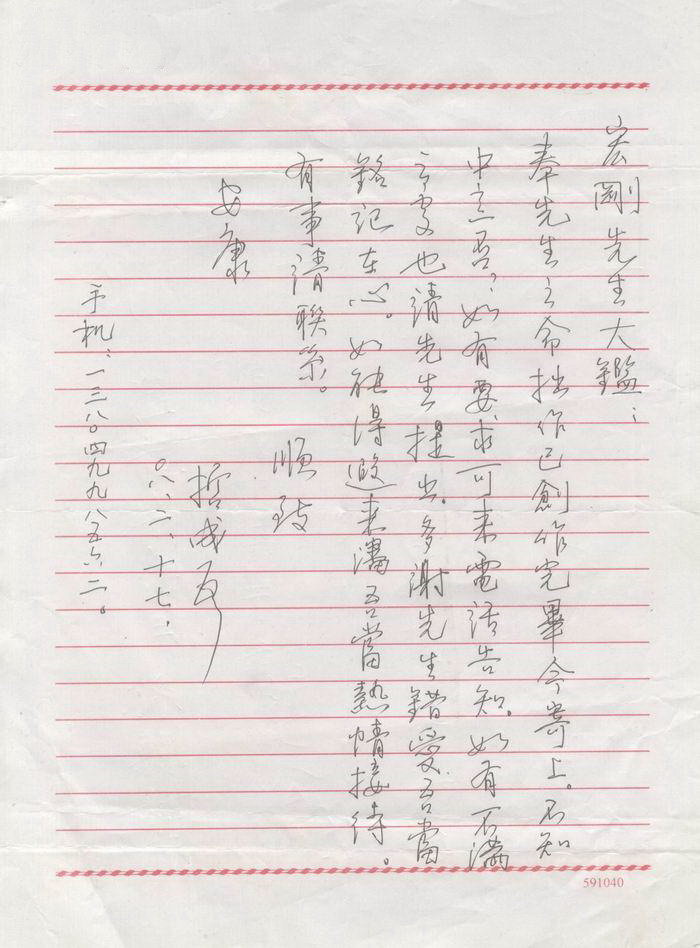 宏剛先生大鑑：
奉先生之命拙作已創作完畢今寄上。不知
中意否，如有要求可来電话告知。如有不滿
言處也請先生提出。多謝先生錯愛吾當
銘记在心。如能得遐来瀋吾當熱情接待。
有事請聯系。
順致
安康
哲成
〇八、二、十七、
手机：一三八〇四九九八五六二。
591040